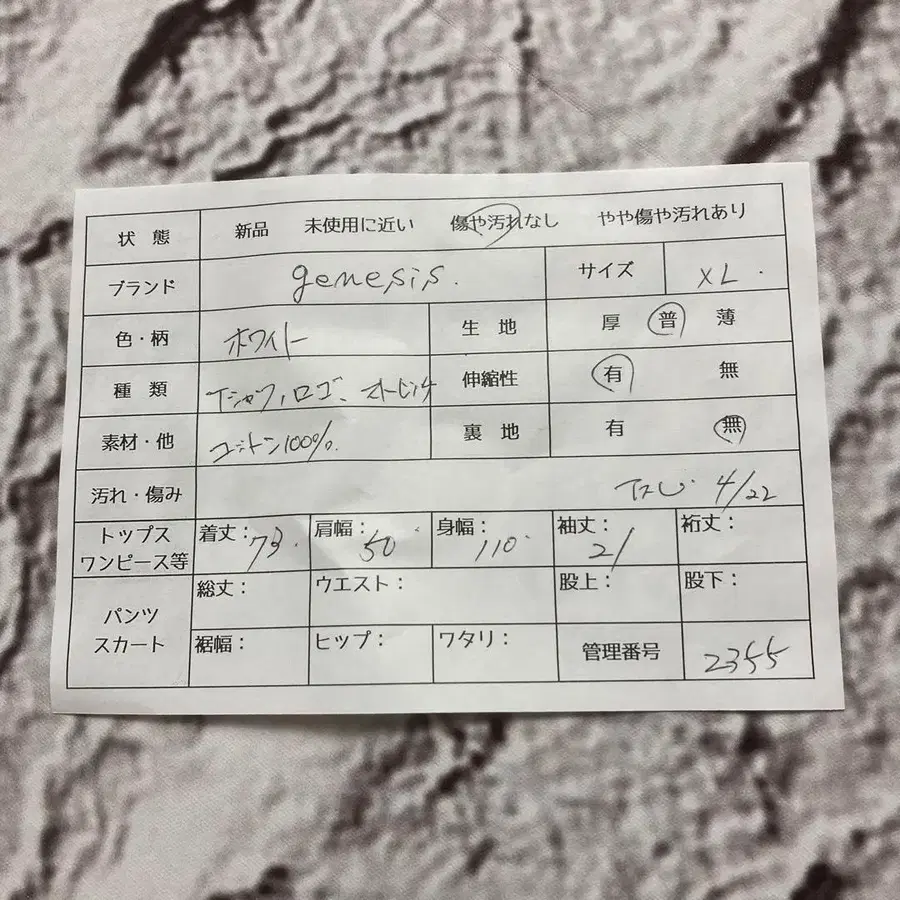 状態 新品 未使用に近い 傷や汚れなし やや傷や汚れあり
ブランド genesis. サイズ XL.
色・柄 ホワイト 生地 厚 普 薄
種類 Tシャツ、ロゴ、 伸縮性 有 無
素材・他 コットン100%. 裏地 有 無
汚れ・傷み なし. 4/22
トップス ワンピース等 着丈: 73. 肩幅: 50 身幅: 110. 袖丈: 21 裄丈:
パンツ スカート 総丈: ウエスト: 股上: 股下:
裾幅: ヒップ: ワタリ: 管理番号 2355